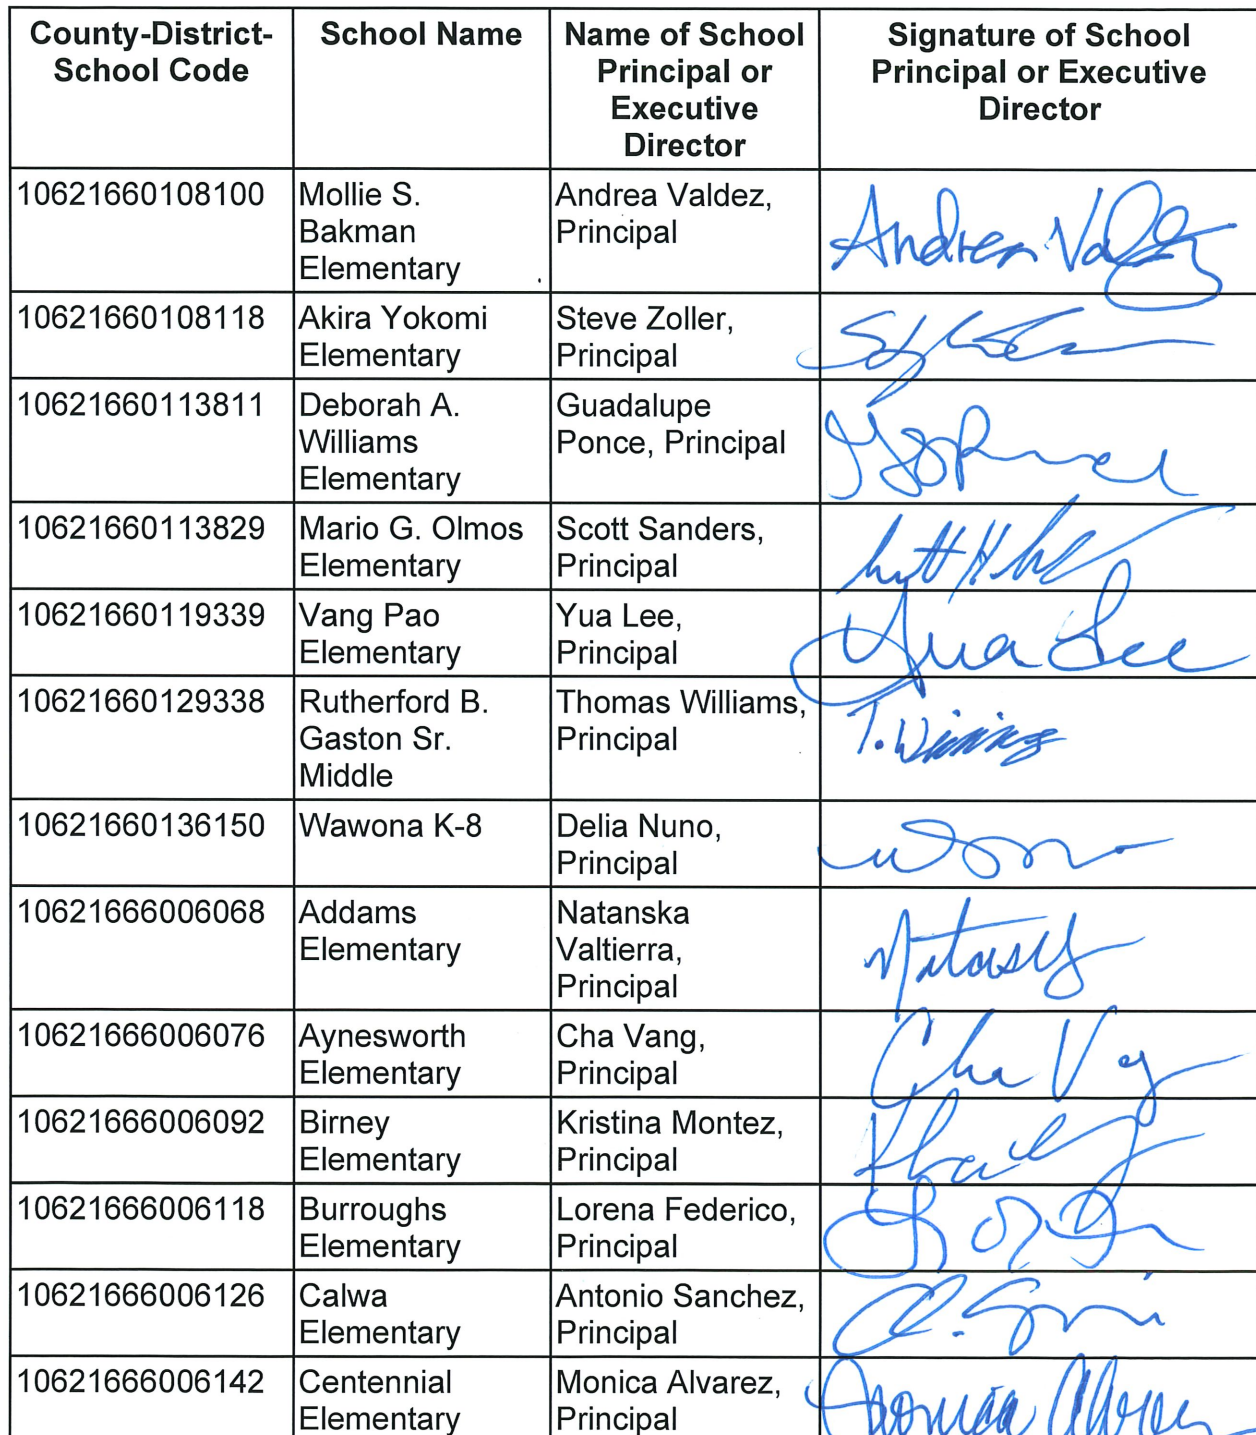 County-District-
School Code
School Name
Name of School
Principal or
Executive
Director
Signature of School
Principal or Executive
Director
10621660108100
Mollie S.
Bakman
Elementary
Andrea Valdez,
Principal
Andrea Valdez
10621660108118
Akira Yokomi
Elementary
Steve Zoller,
Principal
10621660113811
Deborah A.
Williams
Elementary
Guadalupe
Ponce, Principal
10621660113829
Mario G. Olmos
Elementary
Scott Sanders,
Principal
10621660119339
Vang Pao
Elementary
Yua Lee,
Principal
Yua Lee
10621660129338
Rutherford B.
Gaston Sr.
Middle
Thomas Williams,
Principal
T.
10621660136150
Wawona K-8
Delia Nuno,
Principal
10621666006068
Addams
Elementary
Natanska
Valtierra,
Principal
10621666006076
Aynesworth
Elementary
Cha Vang,
Principal
Cha Vg
10621666006092
Birney
Elementary
Kristina Montez,
Principal
10621666006118
Burroughs
Elementary
Lorena Federico,
Principal
10621666006126
Calwa
Elementary
Antonio Sanchez,
Principal
10621666006142
Centennial
Elementary
Monica Alvarez,
Principal
Monica Alvarez